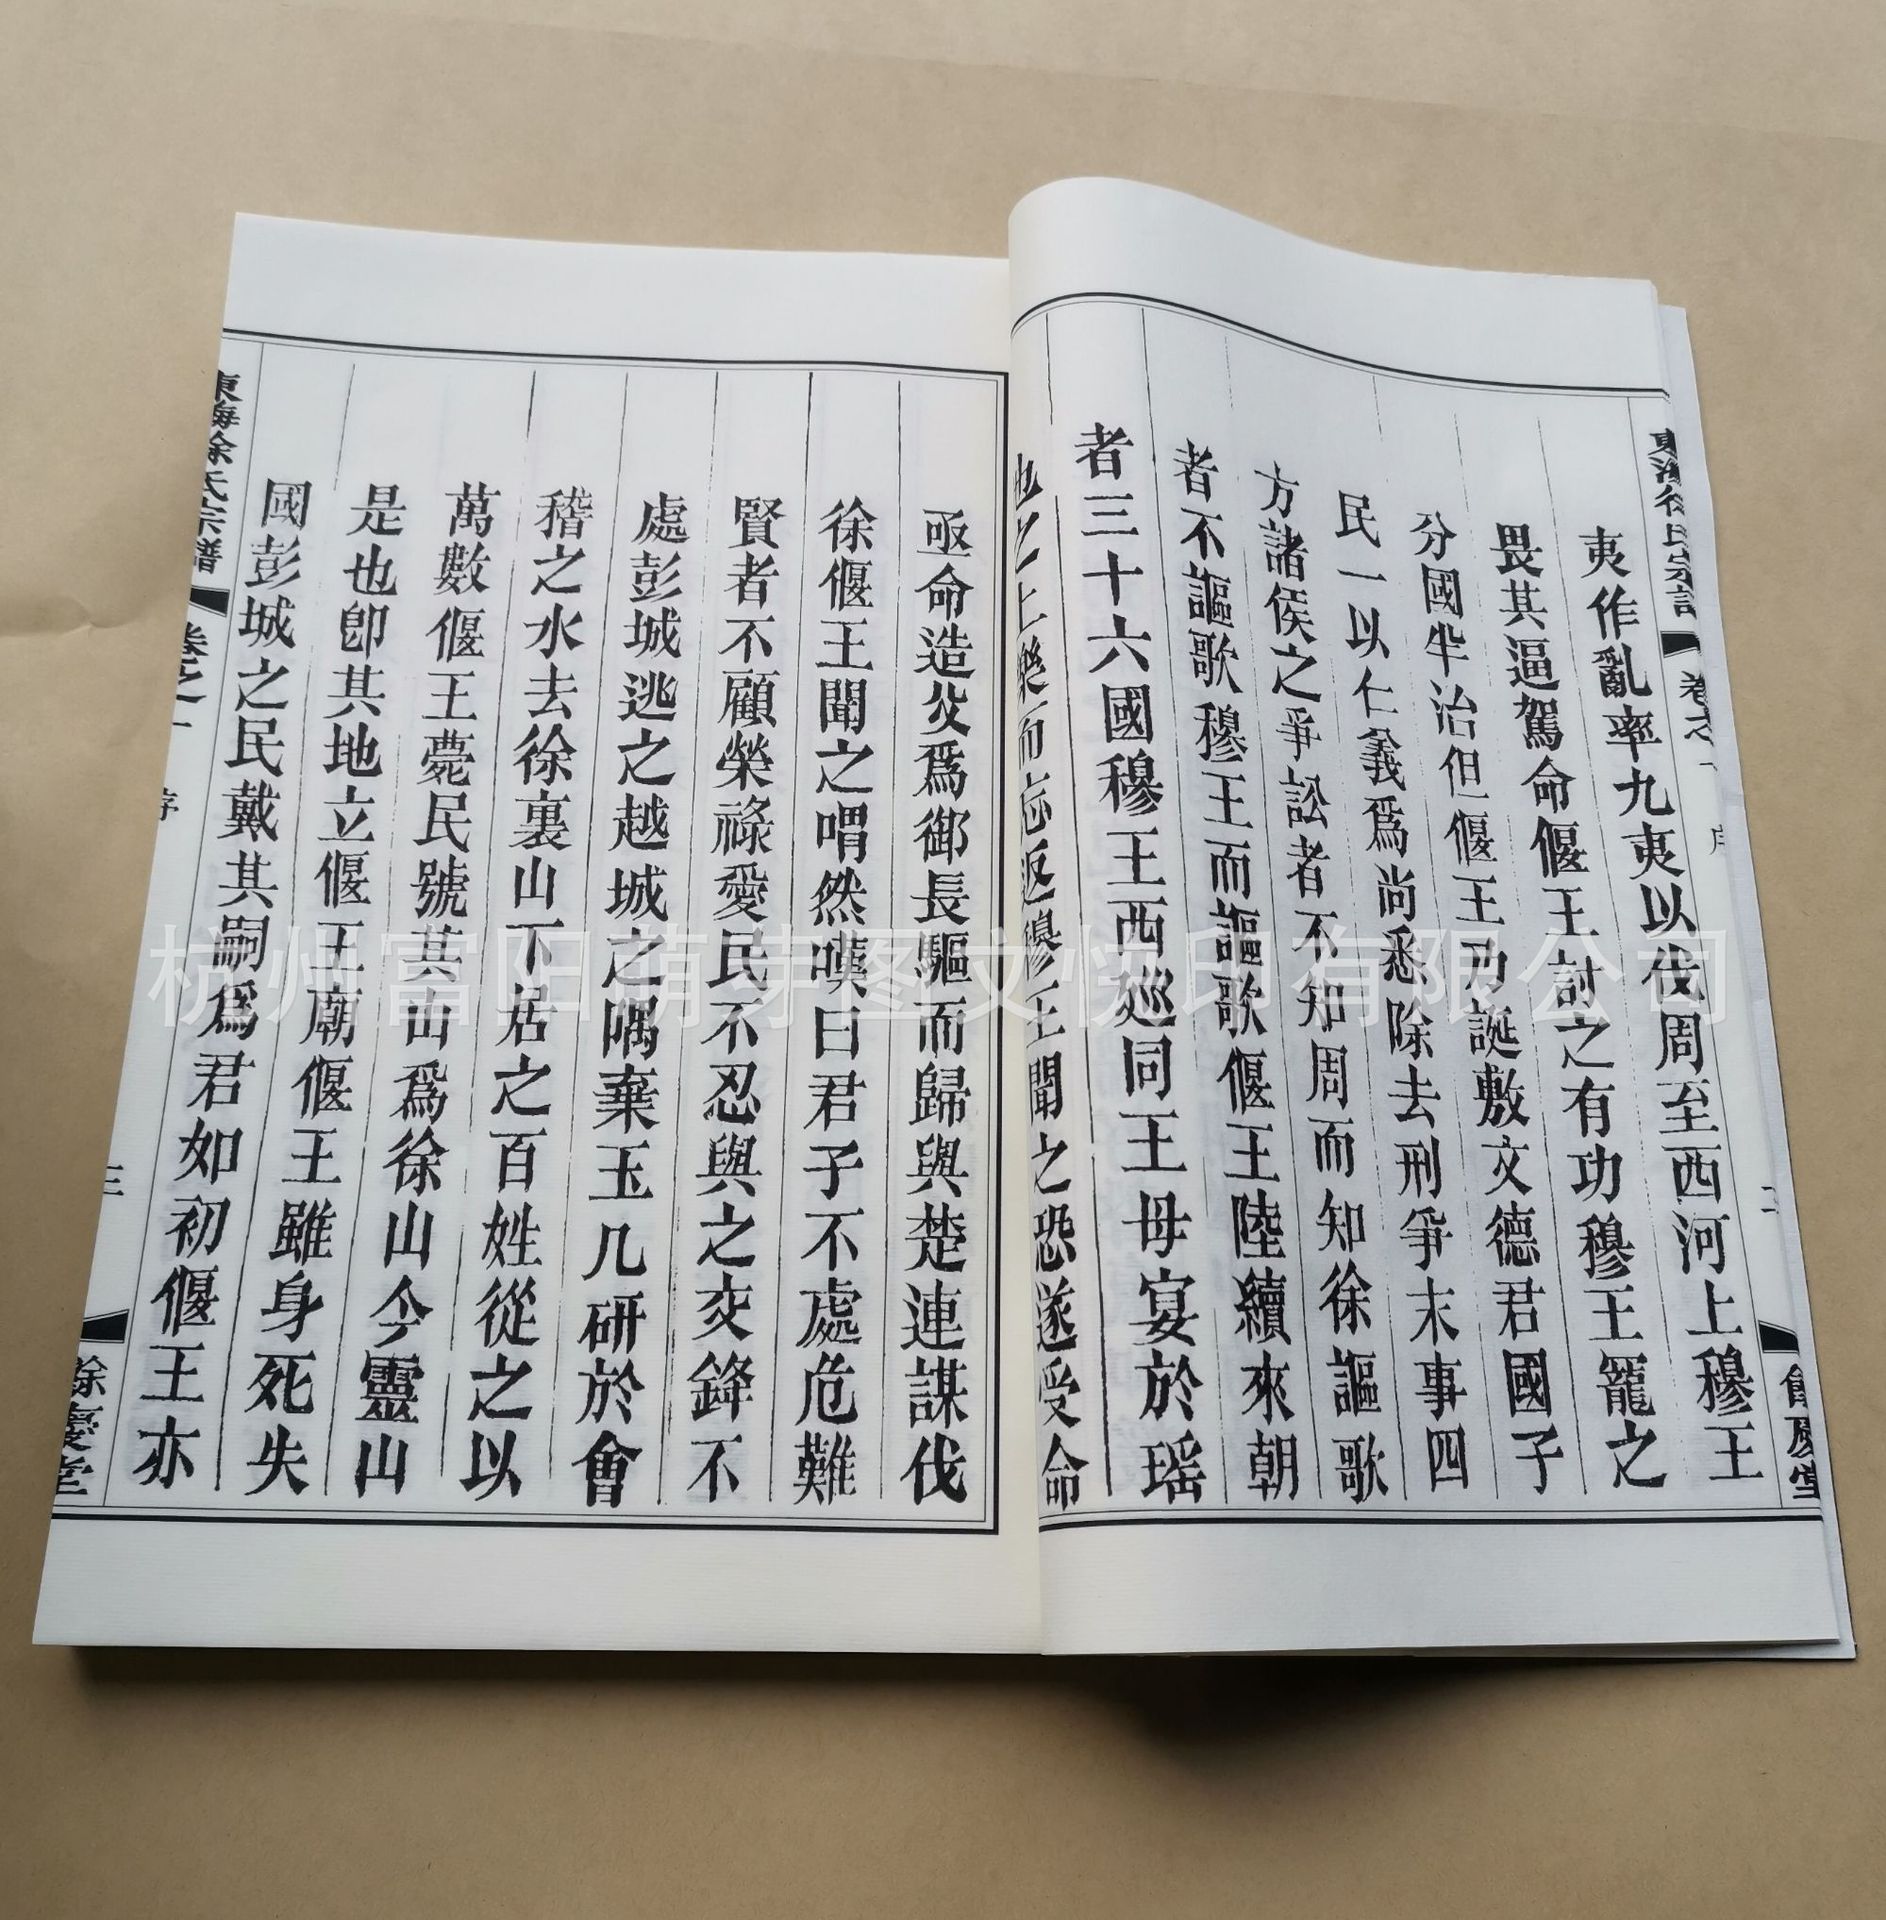 夷作亂率九夷以伐周至西河上穆王
畏其逼駕命偃王討之有功穆王寵之
分國半治但偃王乃誕敷文德君國子
民一以仁義爲尚悉除去刑爭末事四
方諸侯之爭訟者不知周而知徐謳歌
者不謳歌穆王而謳歌偃王陸續來朝
者三十六國穆王西巡同王母宴於瑶
池之上樂而忘返穆王聞之恐遂受命
亟命造父爲御長驅而歸與楚連謀伐
徐偃王聞之喟然嘆曰君子不處危難
賢者不顧榮祿愛民不忍與之交鋒不
處彭城逃之越城之隅棄玉几研於會
稽之水去徐裏山下居之百姓從之以
萬數偃王薨民號其山爲徐山今靈山
是也卽其地立偃王廟偃王雖身死失
國彭城之民戴其嗣爲君如初偃王亦
東海徐氏宗譜
卷之一
序
三
餘慶堂
杭州富阳萌芽图文快印有限公司